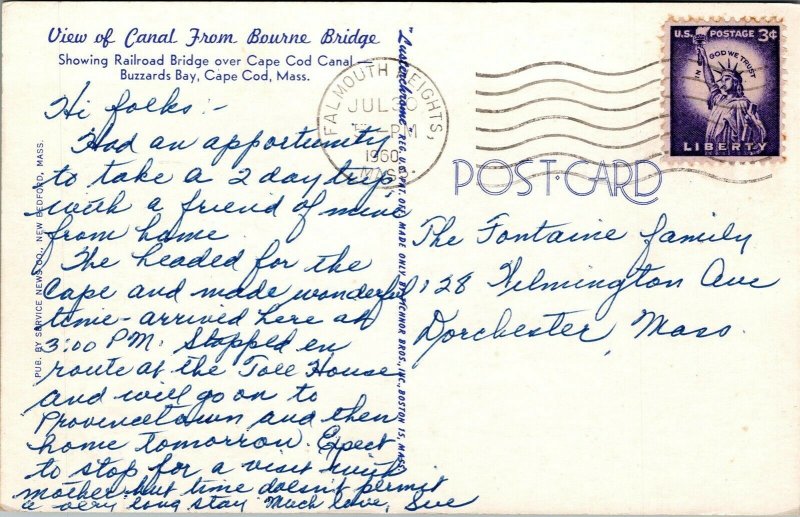 View of Canal From Bourne Bridge
Showing Railroad Bridge over Cape Cod Canal —
Buzzards Bay, Cape Cod, Mass.
Hi folks:-
Had an opportunity
to take a 2 day trip
with a friend of mine
from home.
The headed for the
Cape and made wonderful
time - arrived here at
3:00 P.M. Stopped en
route at the Toll House
and will go on to
Provincetown and then
home tomorrow. Expect
to stop for a visit with
mother but time doesn't permit
a very long stay. Much love, Sue
PUB. BY SERVICE NEWS CO., NEW BEDFORD, MASS.
"Lusterchrome" REG. U.S. PAT. OFF. MADE ONLY BY TICHNOR BROS., INC., BOSTON 15, MASS.
FALMOUTH HEIGHTS,
JUL 20
PM
1960
MASS.
U.S. POSTAGE 3¢
IN GOD WE TRUST
LIBERTY
POST CARD
The Fontaine family
128 Wilmington Ave
Dorchester, Mass.